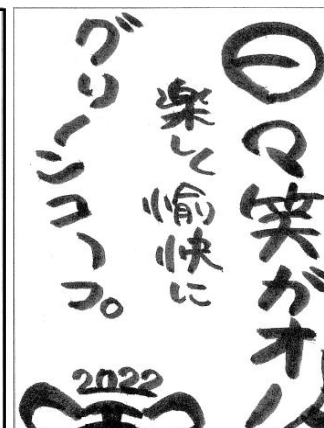 日々笑がオ
楽しく
愉快に
グリーンコープ
2022